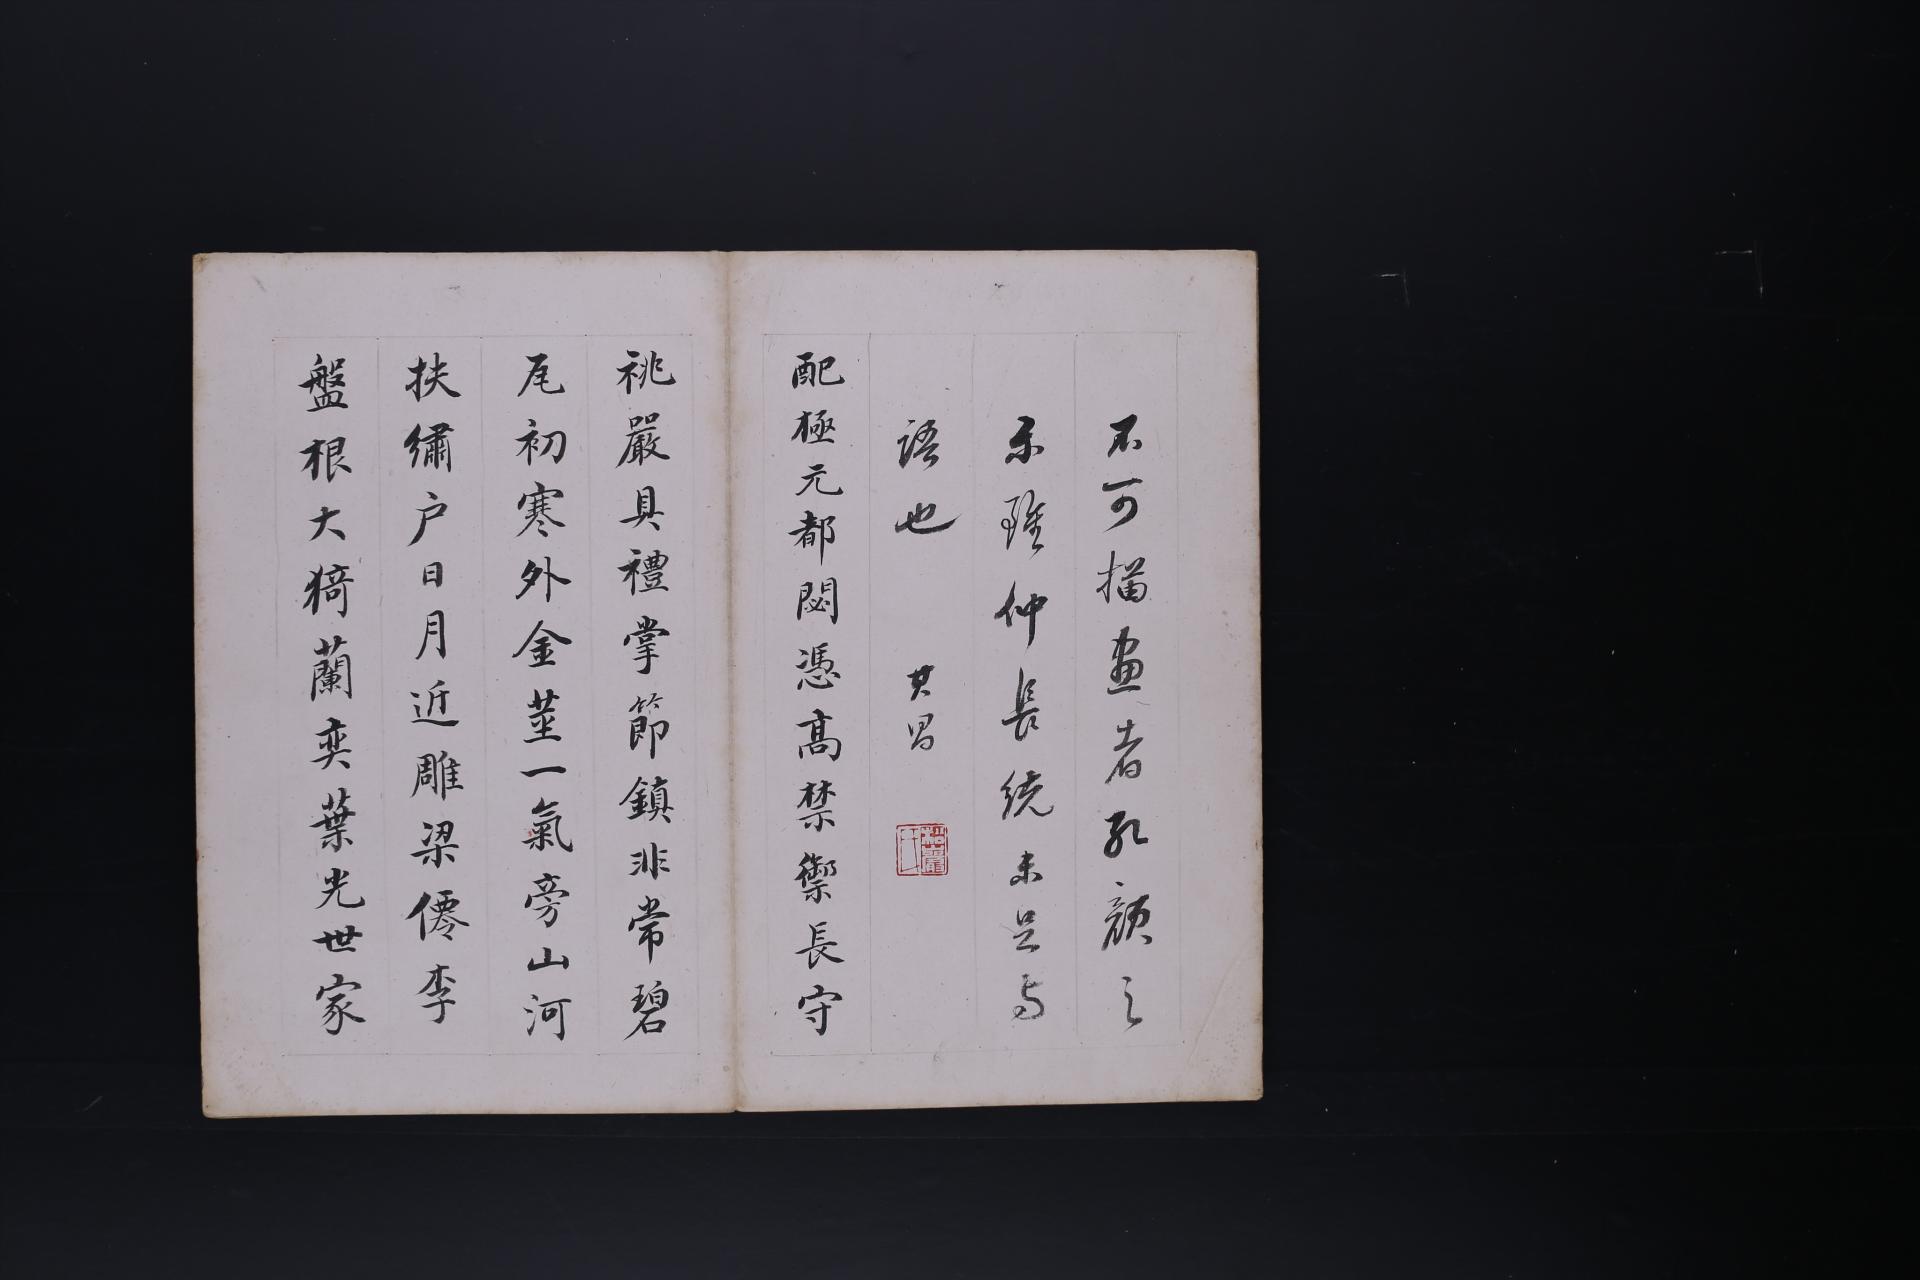 不可描畫者孔顏之
樂雖仲長統未足與
語也 其昌
配極元都閟憑高禁籞長守
祧嚴具禮掌節鎮非常碧
瓦初寒外金莖一氣旁山河
扶繡戶日月近雕梁僊李
盤根大猗蘭奕葉光世家